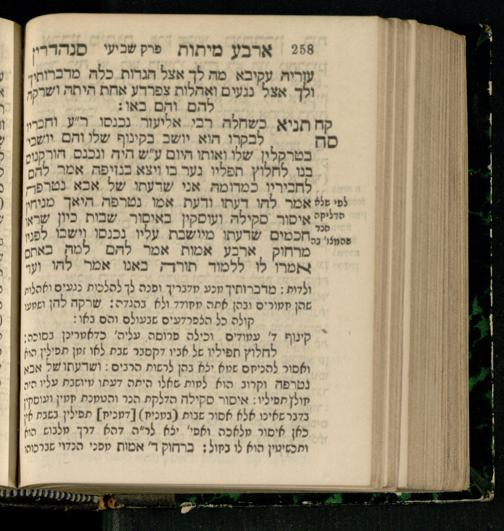 258 ארבע מיתות פרק שביעי סנהדרין
עזריה עקיבא מה לך אצל הגדות כלה מדברותיך
ולך אצל נגעים ואהלות צפרדע אחת היתה ושרקה
להם והם באו:
קח תניא כשחלה רבי אליעזר נכנסו ר"ע וחבריו
סח לבקרו הוא יושב בקינוף שלו והם יושבי'
בטרקלין שלו ואותו היום ע"ש היה ונכנס הורקנוס
בנו לחלוץ תפליו גער בו ויצא בנזיפה אמר להם
לחביריו כמדומה אני שדעתו של אבא נטרפה
לפי שלא אמר להו דעתו ודעת אמו נטרפה היאך מניחין
הדליקה איסור סקילה ועוסקין באיסור שבות כיון שראו
הנר חכמים שדעתו מיושבת עליו נכנסו וישבו לפניו
מרחוק ארבע אמות אמר להם למה באתם
אמרו לו ללמוד תורה באנו אמר להו ועד
ולדות: מדברותיך מנע מדבריך ופנה לך להלכות נגעים ואהלות
שהן חמורים ובהן אתה מחודד ולא בהגדה: שרקה להן ושמעו
קולה כל הצפרדעים שבעולם והם באו:
קינוף ד' עמודים וכילה פרוסה עליה' כדאמרינן בסוכה:
לחלוץ תפיליו של אביו דקסבר שבת לאו זמן תפילין הוא
ואסור להניחם שמא יצא בהן לרשות הרבים: ושדעתו של אבא
נטרפה וקרוב הוא למות שאלו היתה דעתו מיושבת עליו היה
חולץ תפיליו: איסור סקילה הדלקת הנר והטמנת חמין ועוסקין
בדבר שאינו אלא אסור שבות (במניח) [דמניח] תפילין בשבת אין
כאן איסור מלאכה ואפי' יצא לר"ה דהא דרך מלבוש הוא
ותכשיטין הוא לו בחול: ברחוק ד' אמות מפני הנדוי שברכוהו